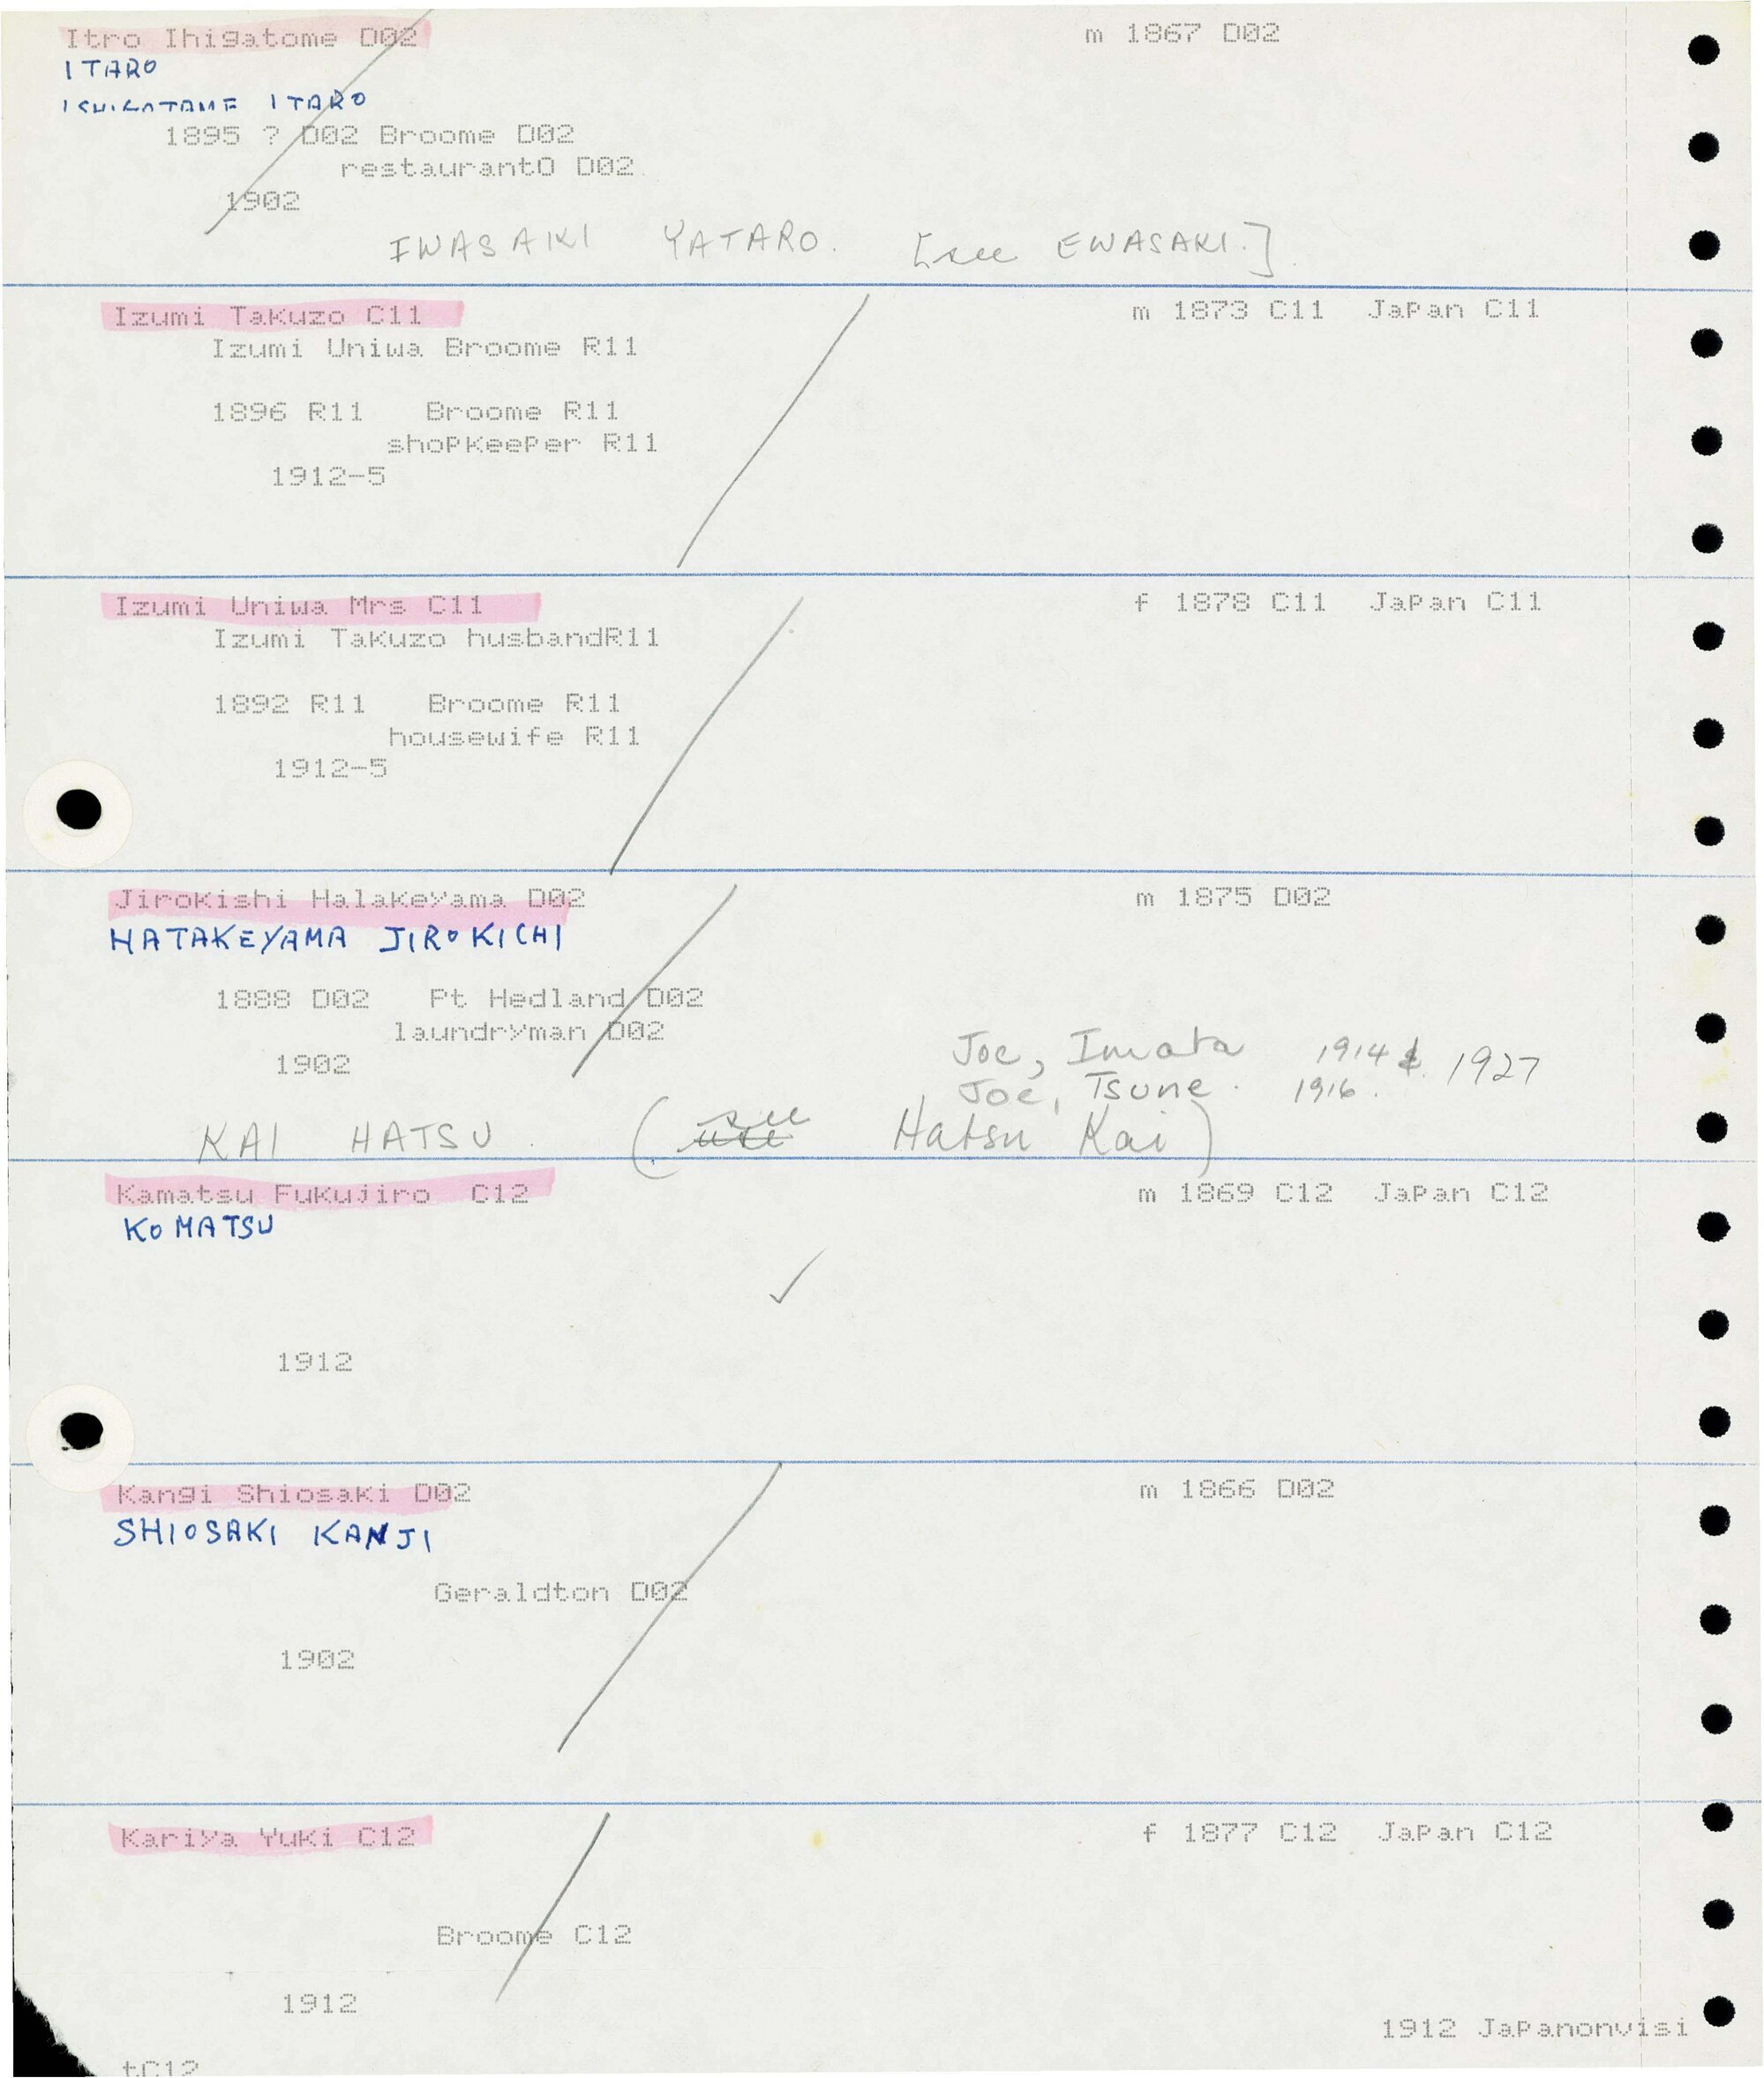 Itro Ihigatome D02 m 1867 D02
ITARO
ISHIGATAME ITARO
1895 ? D02 Broome D02
restaurantO D02
1902
IWASAKI YATARO. [see EWASAKI.]
Izumi Takuzo C11 m 1873 C11 Japan C11
Izumi Uniwa Broome R11
1896 R11 Broome R11
shopkeeper R11
1912-5
Izumi Uniwa Mrs C11 f 1878 C11 Japan C11
Izumi Takuzo husbandR11
1892 R11 Broome R11
housewife R11
1912-5
Jirokishi Halakeyama D02 m 1875 D02
HATAKEYAMA JIROKICHI
1888 D02 Pt Hedland D02
laundryman D02
1902
Joe, Imata 1914 & 1927
Joe, Tsune. 1916.
KAI HATSU. (see Hatsu Kai)
Kamatsu Fukujiro C12 m 1869 C12 Japan C12
KOMATSU
1912
Kangi Shiosaki D02 m 1866 D02
SHIOSAKI KANJI
Geraldton D02
1902
Kariya Yuki C12 f 1877 C12 Japan C12
Broome C12
1912
1912 Japanonvisi
tC12